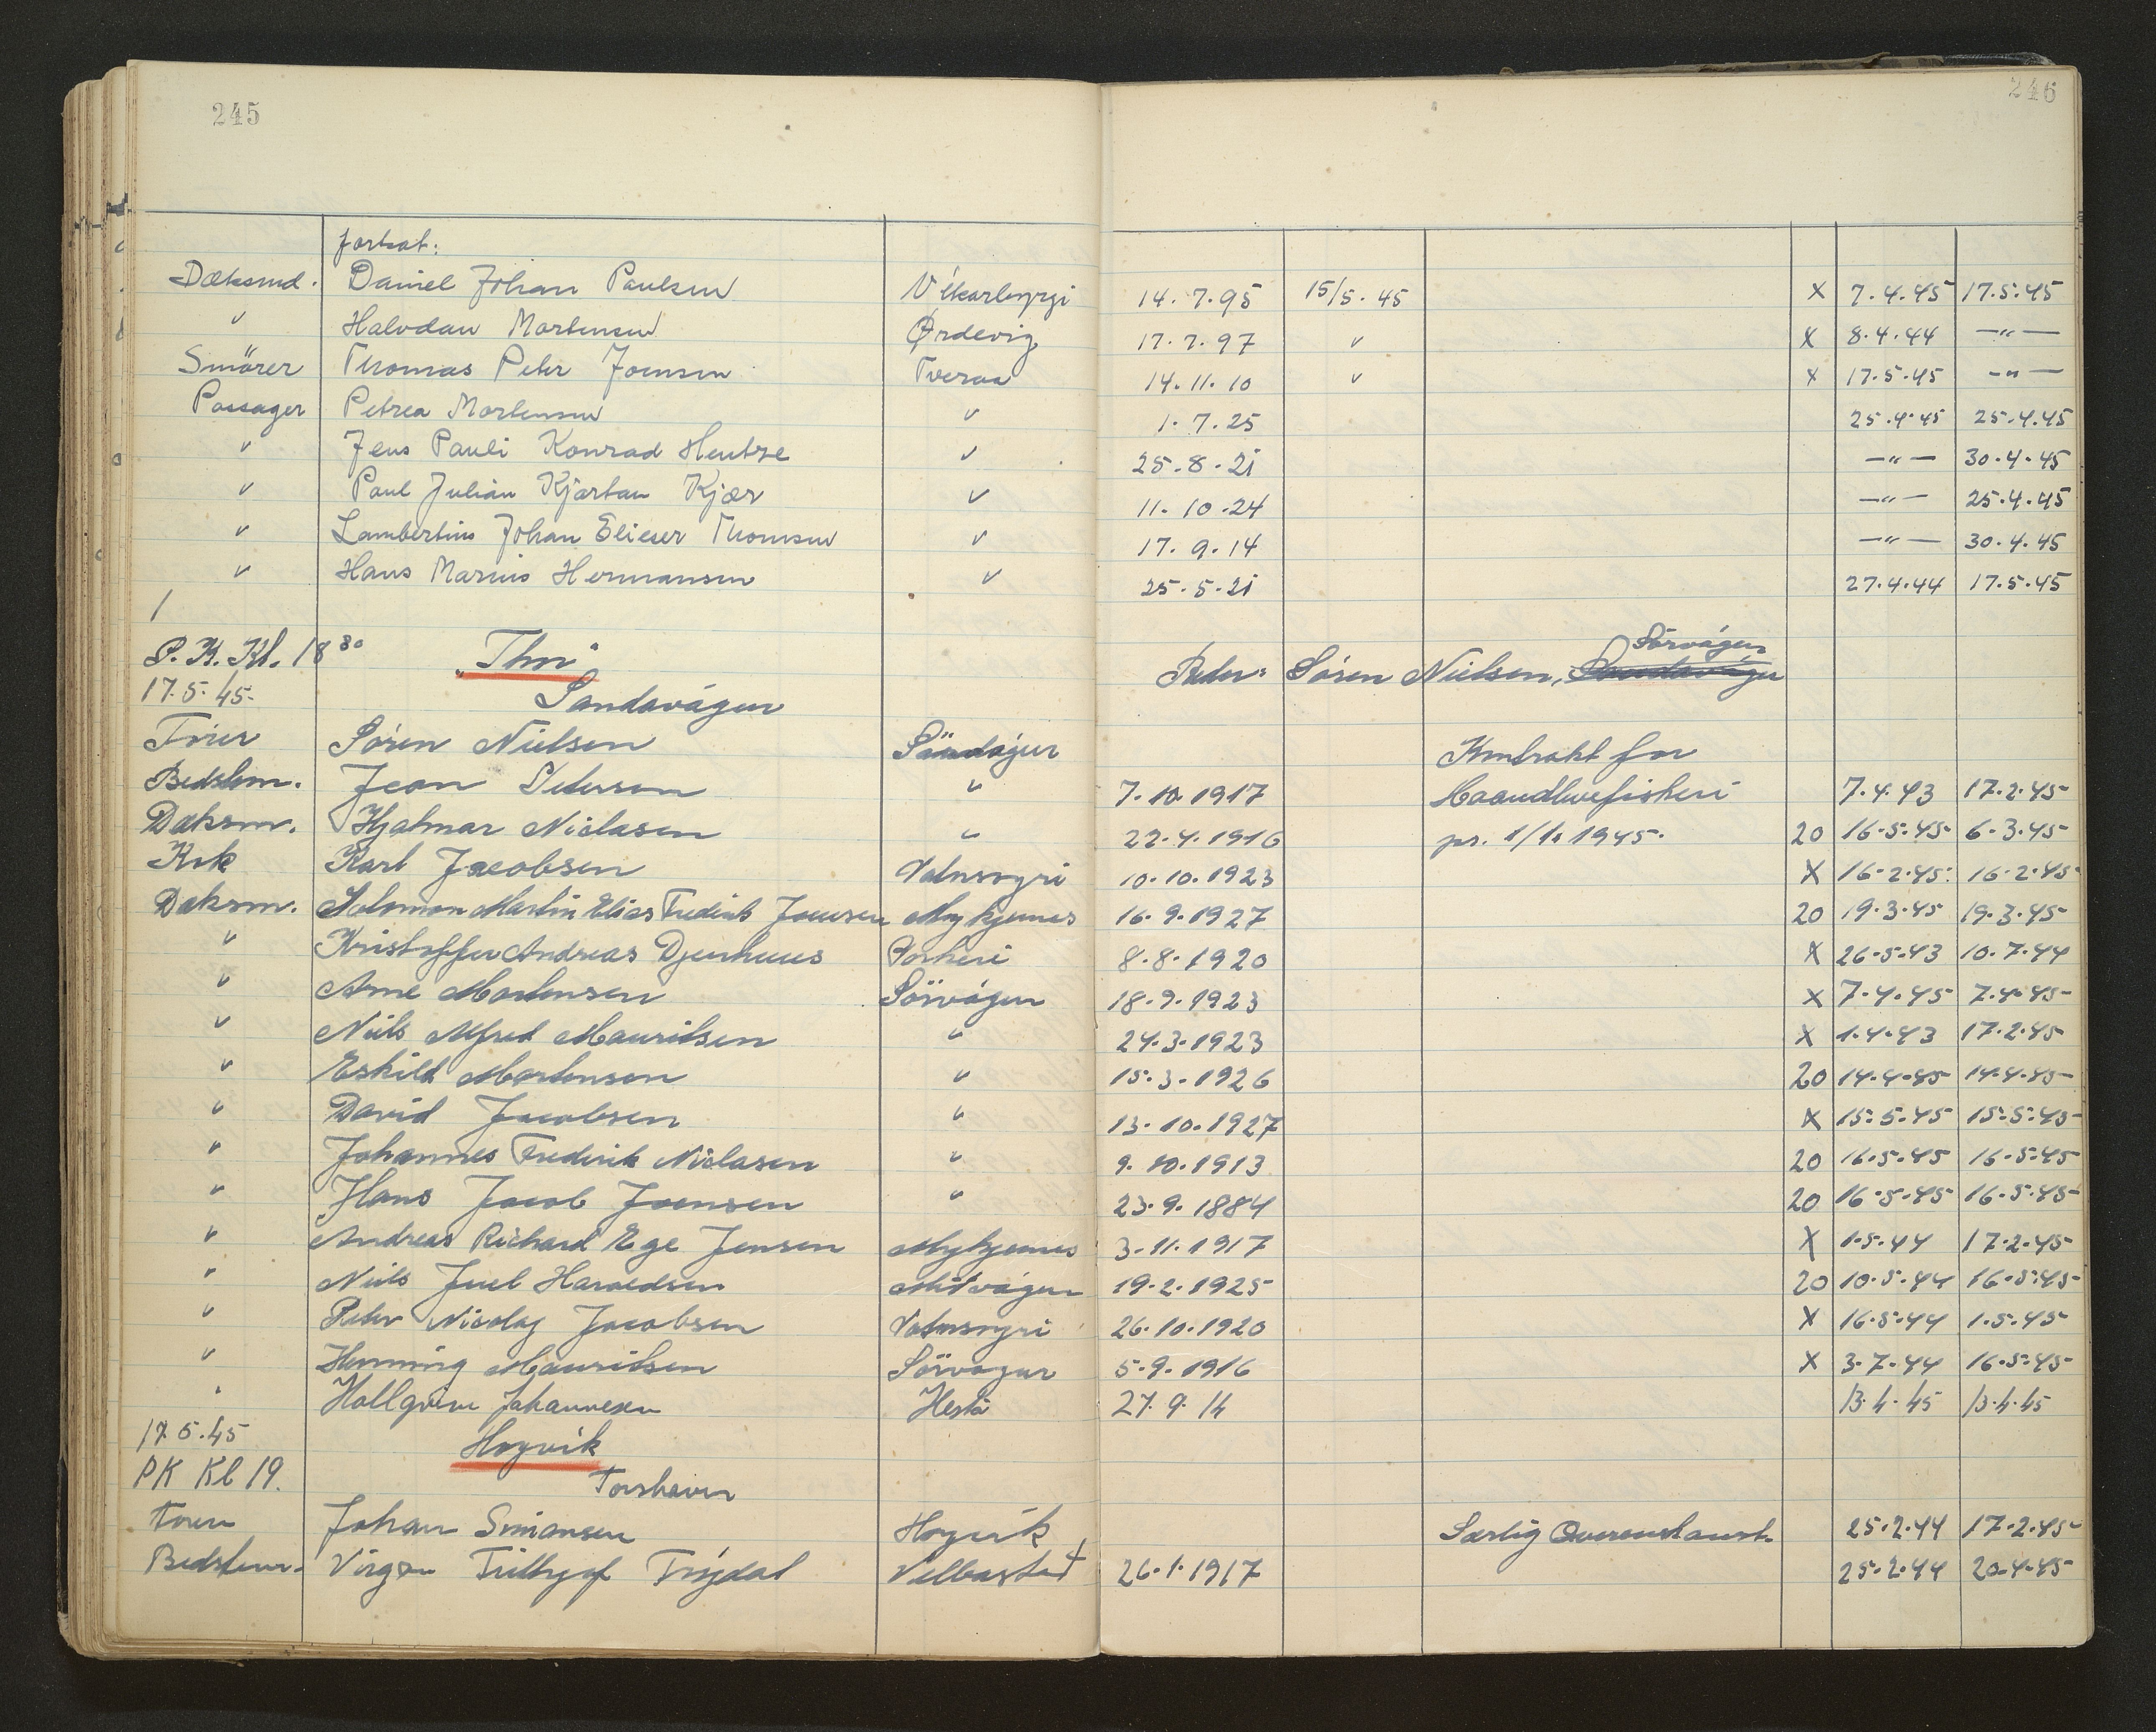 245
246
fortsat:
Dæksmd. Daniel Johan Paulsen Víkarbyrgi 14.7.95 15/5.45 X 7.4.45 17.5.45
" Halvdan Mortensen Ørdevig 17.7.97 " X 8.4.44 —"—
Smörer Thomas Peter Joensen Tveraa 14.11.10 " X 17.5.45 —"—
Passager Petrea Mortensen " 1.7.25 25.4.45 25.4.45
" Jens Pauli Konrad Hentze " 25.8.21 —"— 30.4.45
" Paul Julian Kjartan Kjær " 11.10.24 —"— 25.4.45
" Lambertius Johan Elieser Thomsen " 17.9.14 —"— 30.4.45
" Hans Marius Hermansen " 25.5.21 27.4.44 17.5.45
/
P.K. Kl. 18³⁰ "Thor" Reder: Søren Nielsen, Sörvágur
17.5.45 Sandavágur
Förer Sören Nielsen Kontrakt for
Bedstem. Jean Petersen " 7.10.1917 Haandlinefiskeri 7.4.43 17.2.45
Dæksm. Hjalmar Niclasen " 22.4.1916 pr. 1/1. 1945. 20 16.5.45 6.3.45
Kok Karl Jacobsen Vatnsoyri 10.10.1923 X 16.2.45 16.2.45
Dæksm. Solomon Martin Elias Frederik Joensen Mykjenes 16.9.1927 20 19.3.45 19.3.45
" Kristoffer Andreas Djurhuus Porkeri 8.8.1920 X 26.5.43 10.7.44
" Arne Mortensen Sörvágur 18.9.1923 X 7.4.45 7.4.45
" Niels Alfred Mauritsen " 24.3.1923 X 1.4.43 17.2.45
" Eskild Mortensen " 15.3.1926 20 14.4.45 14.4.45
" David Jacobsen " 13.10.1927 X 15.5.45 15.5.45
" Johannes Frederik Niclasen " 9.10.1913 20 16.5.45 16.5.45
" Hans Jacob Joensen " 23.9.1884 20 16.5.45 16.5.45
" Andreas Richard Ege Jensen Mykjenes 3.11.1917 X 1.5.44 17.2.45
" Niels Juel Haraldsen Midvágur 19.2.1925 20 10.5.44 16.5.45
" Peter Nicolaj Jacobsen Vatnsoyri 26.10.1920 X 16.5.44 1.5.45
" Henning Mauritsen Sörvágur 5.9.1916 X 3.7.44 16.5.45
" Hallgrim Johannesen Hestö 27.9.14 13.4.45 13.4.45
17.5.45 Hoyvik
PK Kl 19. Torshavn
Förer Johan Simonsen Hoyvik Særlig Overenskomst. 25.2.44 17.2.45
Bedstem. Virgar Trölldal Velbastad 26.1.1917 25.2.44 20.4.45